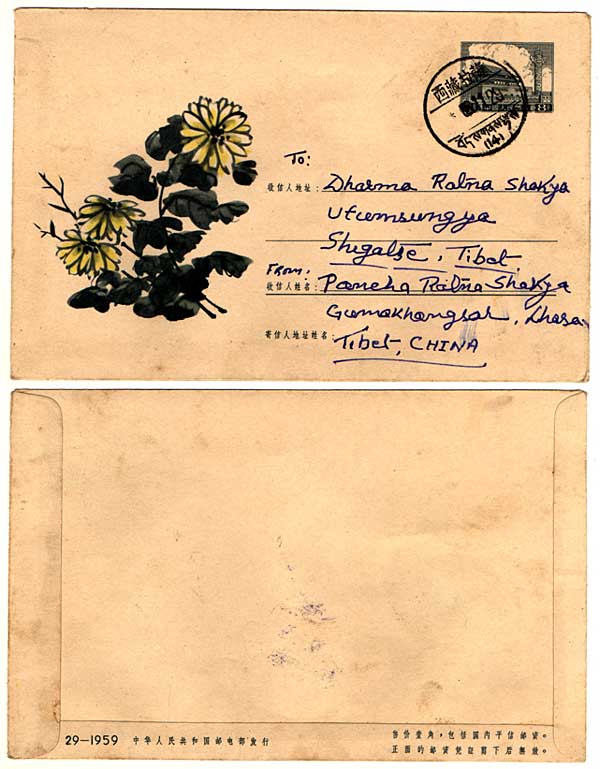 西藏拉萨
(14)
8
To:
收信人地址: Dharma Ratna Shakya
Utumsungya
Shigatse, Tibet
From:
收信人姓名: Pancha Ratna Shakya
Gumakhangsar, Lhasa
寄信人地址姓名:
Tibet, CHINA
29—1959 中华人民共和国邮电部发行
售价壹角,包括国内平信邮资。
正面的邮资凭证剪下后无效。